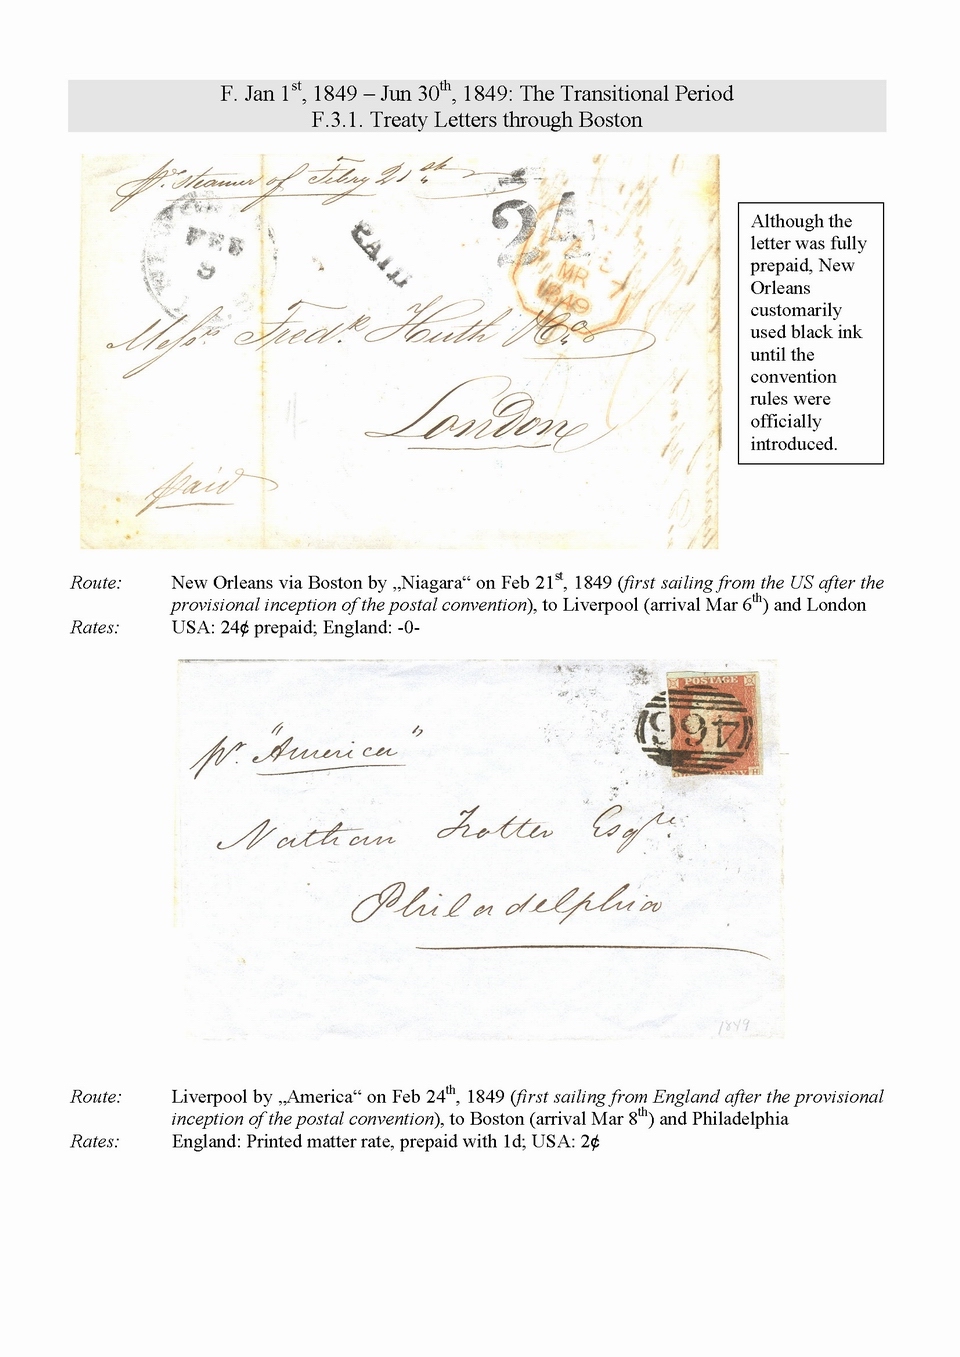 F. Jan 1st, 1849 – Jun 30th, 1849: The Transitional Period
F.3.1. Treaty Letters through Boston
pr. steamer of Febry 21st
FEB
9
PAID
24
MR 7
1849
Messrs Fredk. Huth & Co
London
paid
Although the
letter was fully
prepaid, New
Orleans
customarily
used black ink
until the
convention
rules were
officially
introduced.
Route: New Orleans via Boston by „Niagara“ on Feb 21st, 1849 (first sailing from the US after the
provisional inception of the postal convention), to Liverpool (arrival Mar 6th) and London
Rates: USA: 24¢ prepaid; England: -0-
POSTAGE
466
pr. "America"
Nathan Trotter Esqre.
Philadelphia
1849
Route: Liverpool by „America“ on Feb 24th, 1849 (first sailing from England after the provisional
inception of the postal convention), to Boston (arrival Mar 8th) and Philadelphia
Rates: England: Printed matter rate, prepaid with 1d; USA: 2¢